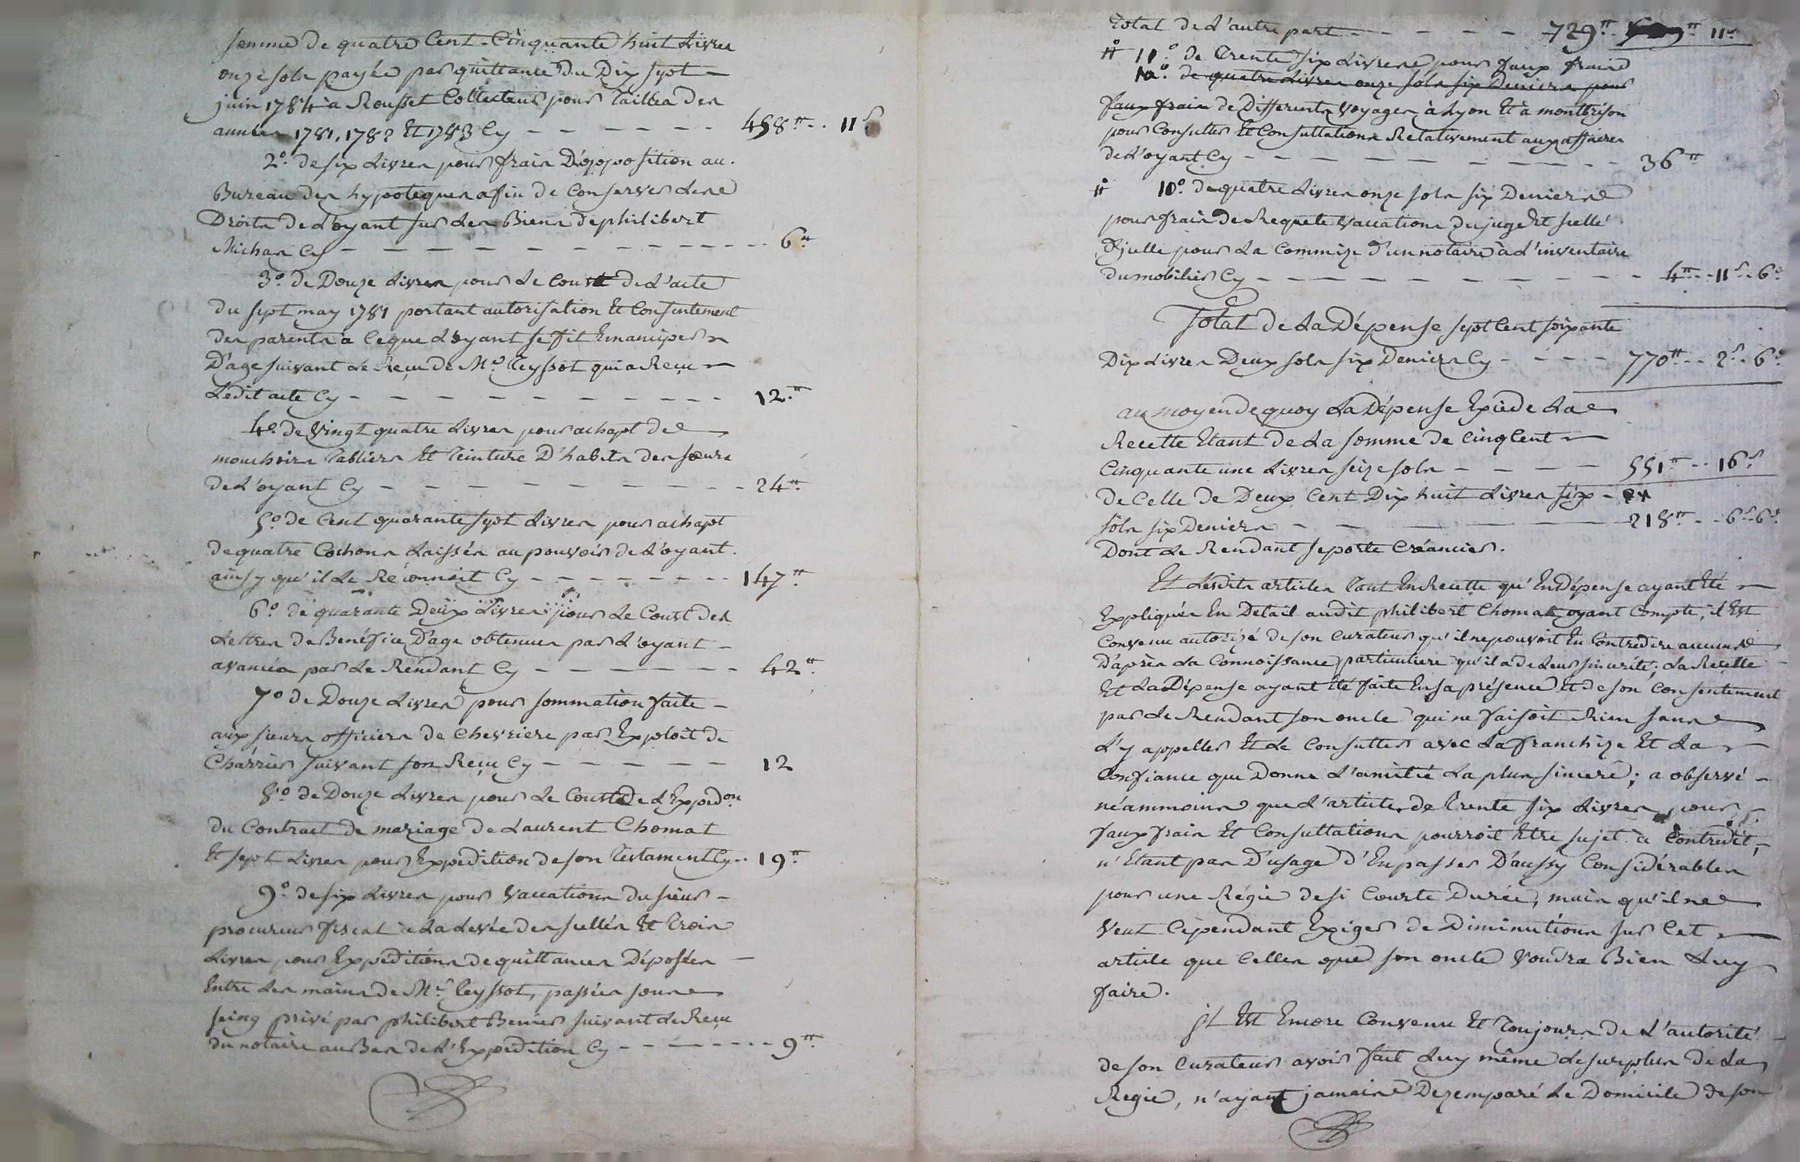 somme de quatre Cent Cinquante huit Livres
onze sols payée par quittance du Dix sept
juin 1784 a Rousset Collecteur pour Tailles des
années 1781, 1782 Et 1783 Cy - - - - - - - 458tt - - 11s
2o. de six Livres pour frais D'opposition au
Bureau des hypoteques afin de Conserver Les
Droits de L'oyant sur Les Biens de philibert
Michas Cy - - - - - - - - - - - - - 6tt
3o. de Douze Livres pour Le Coust de L'acte
du sept may 1781 portant autorisation Et Consentement
des parents a Ceque L'oyant se fit Emanciper
D'age suivant Le Reçu de Me. Teyssot qui a Reçu
Ledit acte Cy - - - - - - - - - - 12tt
4o. de Vingt quatre Livres pour achapt de
mouchoirs Tabliers Et Teinture D'habits des sœurs
de L'oyant Cy - - - - - - - - - - 24tt
5o. de Cent quarante sept Livres pour achapt
de quatre Cochons Laissés au pouvoir de L'oyant
ainsy qu'il Le Réconnoit Cy - - - - - - - 147tt
6o. de quarante Deux Livres pour Le Coust des
Lettres de Bénéfice D'age obtenues par L'oyant
avancées par Le Rendant Cy - - - - - - 42tt
7o. de Douze Livres pour sommation faite
aux sieurs officiers de Chevriere par Exploit de
Charrier suivant son Reçu Cy - - - - - - 12
8o. de Douze Livres pour Le Coust de L'Expedon
du Contract de mariage de Laurent Chomat
Et sept Livres pour Expedition de son Testament Cy - - 19tt
9o. de six Livres pour Vacations du sieur
procureur fiscal à La Levée des scellés Et Trois
Livres pour Expéditions de quittances Déposées
Entre Les mains de Me. Teyssot, passées sous
seing privé par philibert Benier suivant Le Reçu
du notaire au Bas de L'Expédition Cy - - - - - - - 9tt
Total de L'autre part - - - - - - 729tt - 11s
# 11o. de Trente six Livres pour faux frais
10o. de quatre Livres onze sols six Deniers pour
faux frais de Differents Voyages à Lyon Et à montbrison
pour Consulter Et Consultations Relativement aux affaires
de L'oyant Cy - - - - - - - - - - 36tt
# 10o. de quatre Livres onze sols six Deniers
pour frais de Requete Vacations du juge Et scellé
D'icelle pour La Commise d'un notaire à L'inventaire
du mobilier Cy - - - - - - - - - - 4tt - 11s - 6d
Total de La Dépense sept Cent soixante
Dix Livres Deux sols six Deniers Cy - - - - - 770tt - - 2s - 6d
au moyen de quoy La Dépense Excède La
Recette Etant de La somme de Cinq Cent
Cinquante une Livres seize sols - - - - - 551tt - - 16s
de Celle de Deux Cent Dix huit Livres six -
sols six Deniers - - - - 218tt - - 6s - 6d
Dont Le Rendant se porte Créancier.
Et Lesdits articles Tant En Recette qu'En Dépense ayant Eté
Expliqués En Detail audit philibert Chomat oyant Compte, il Est
Convenu autorizé de son Curateur qu'il ne pouvoit En Contredire aucuns
D'après La Connoissance particuliere qu'il a de Leur sincerité; La Recette
Et La Dépense ayant Eté faite En sa présence Et de son Consentement
par Le Rendant son oncle qui ne faisoit Rien sans
L'y appeller Et Le Consulter avec La franchize Et La
Confiance que Donne L'amitié La plus sincere; a observé
néammoins que L'article de Trente six Livres pour
faux frais Et Consultations pourroit Etre sujet à Contredit,
n'Etant pas D'usage D'En passer D'aussy Considérables
pour une Régie de si Courte Durée, mais qu'il ne
Veut Cependant Exiger de Diminutions sur Cet
article que Celles que son oncle Voudra Bien Luy
faire.
jl Est Encore Convenu Et Toujours de L'autorité
de son Curateur avoir fait Luy même Le surplus de La
Régie, n'ayant jamais Dezemparé Le Domicile de son